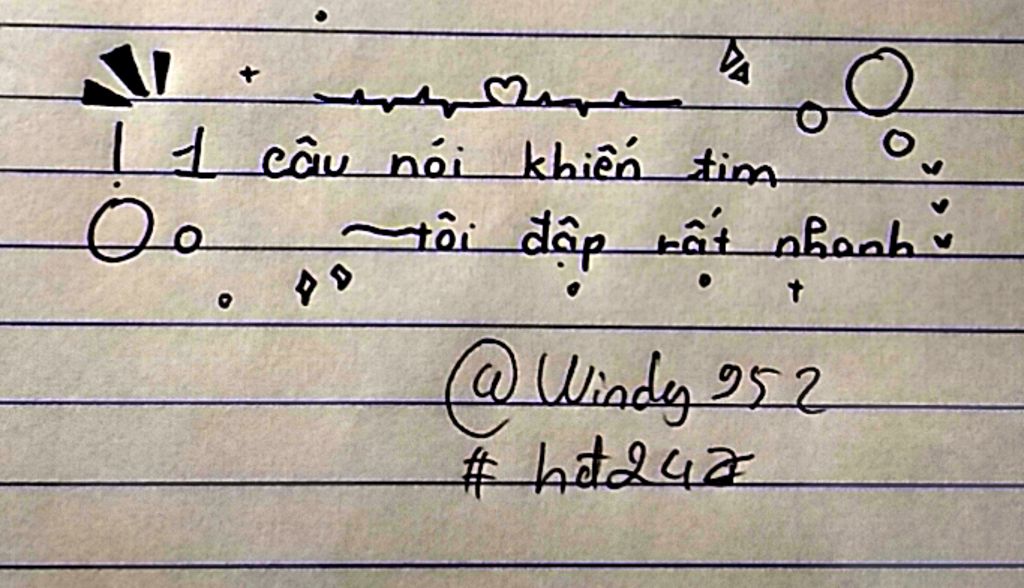 ! 1 câu nói khiến tim
~tôi đập rất nhanh
@Windy952